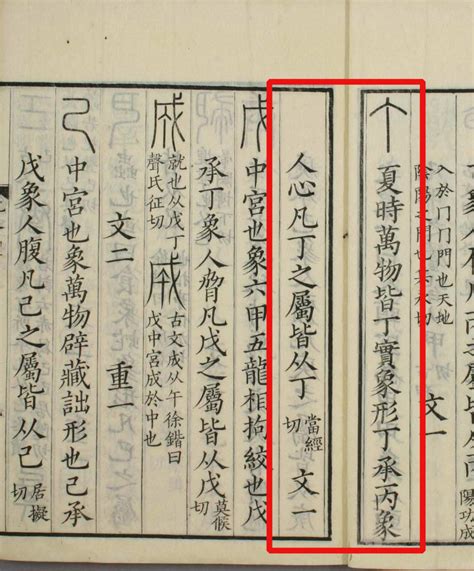 陽功成
入於冂冂門也天地
陰陽之門也兵永切
文一
丁夏時萬物皆丁實象形丁承丙象
人心凡丁之屬皆从丁當經切 文一
戊中宮也象六甲五龍相拘絞也戊
承丁象人脅凡戊之屬皆从戊莫候切
成就也从戊丁聲氏征切 成古文成从午徐鍇曰戊中宮成於中也
文二 重一
己中宮也象萬物辟藏詘形也己承
戊象人腹凡己之屬皆从己居擬切